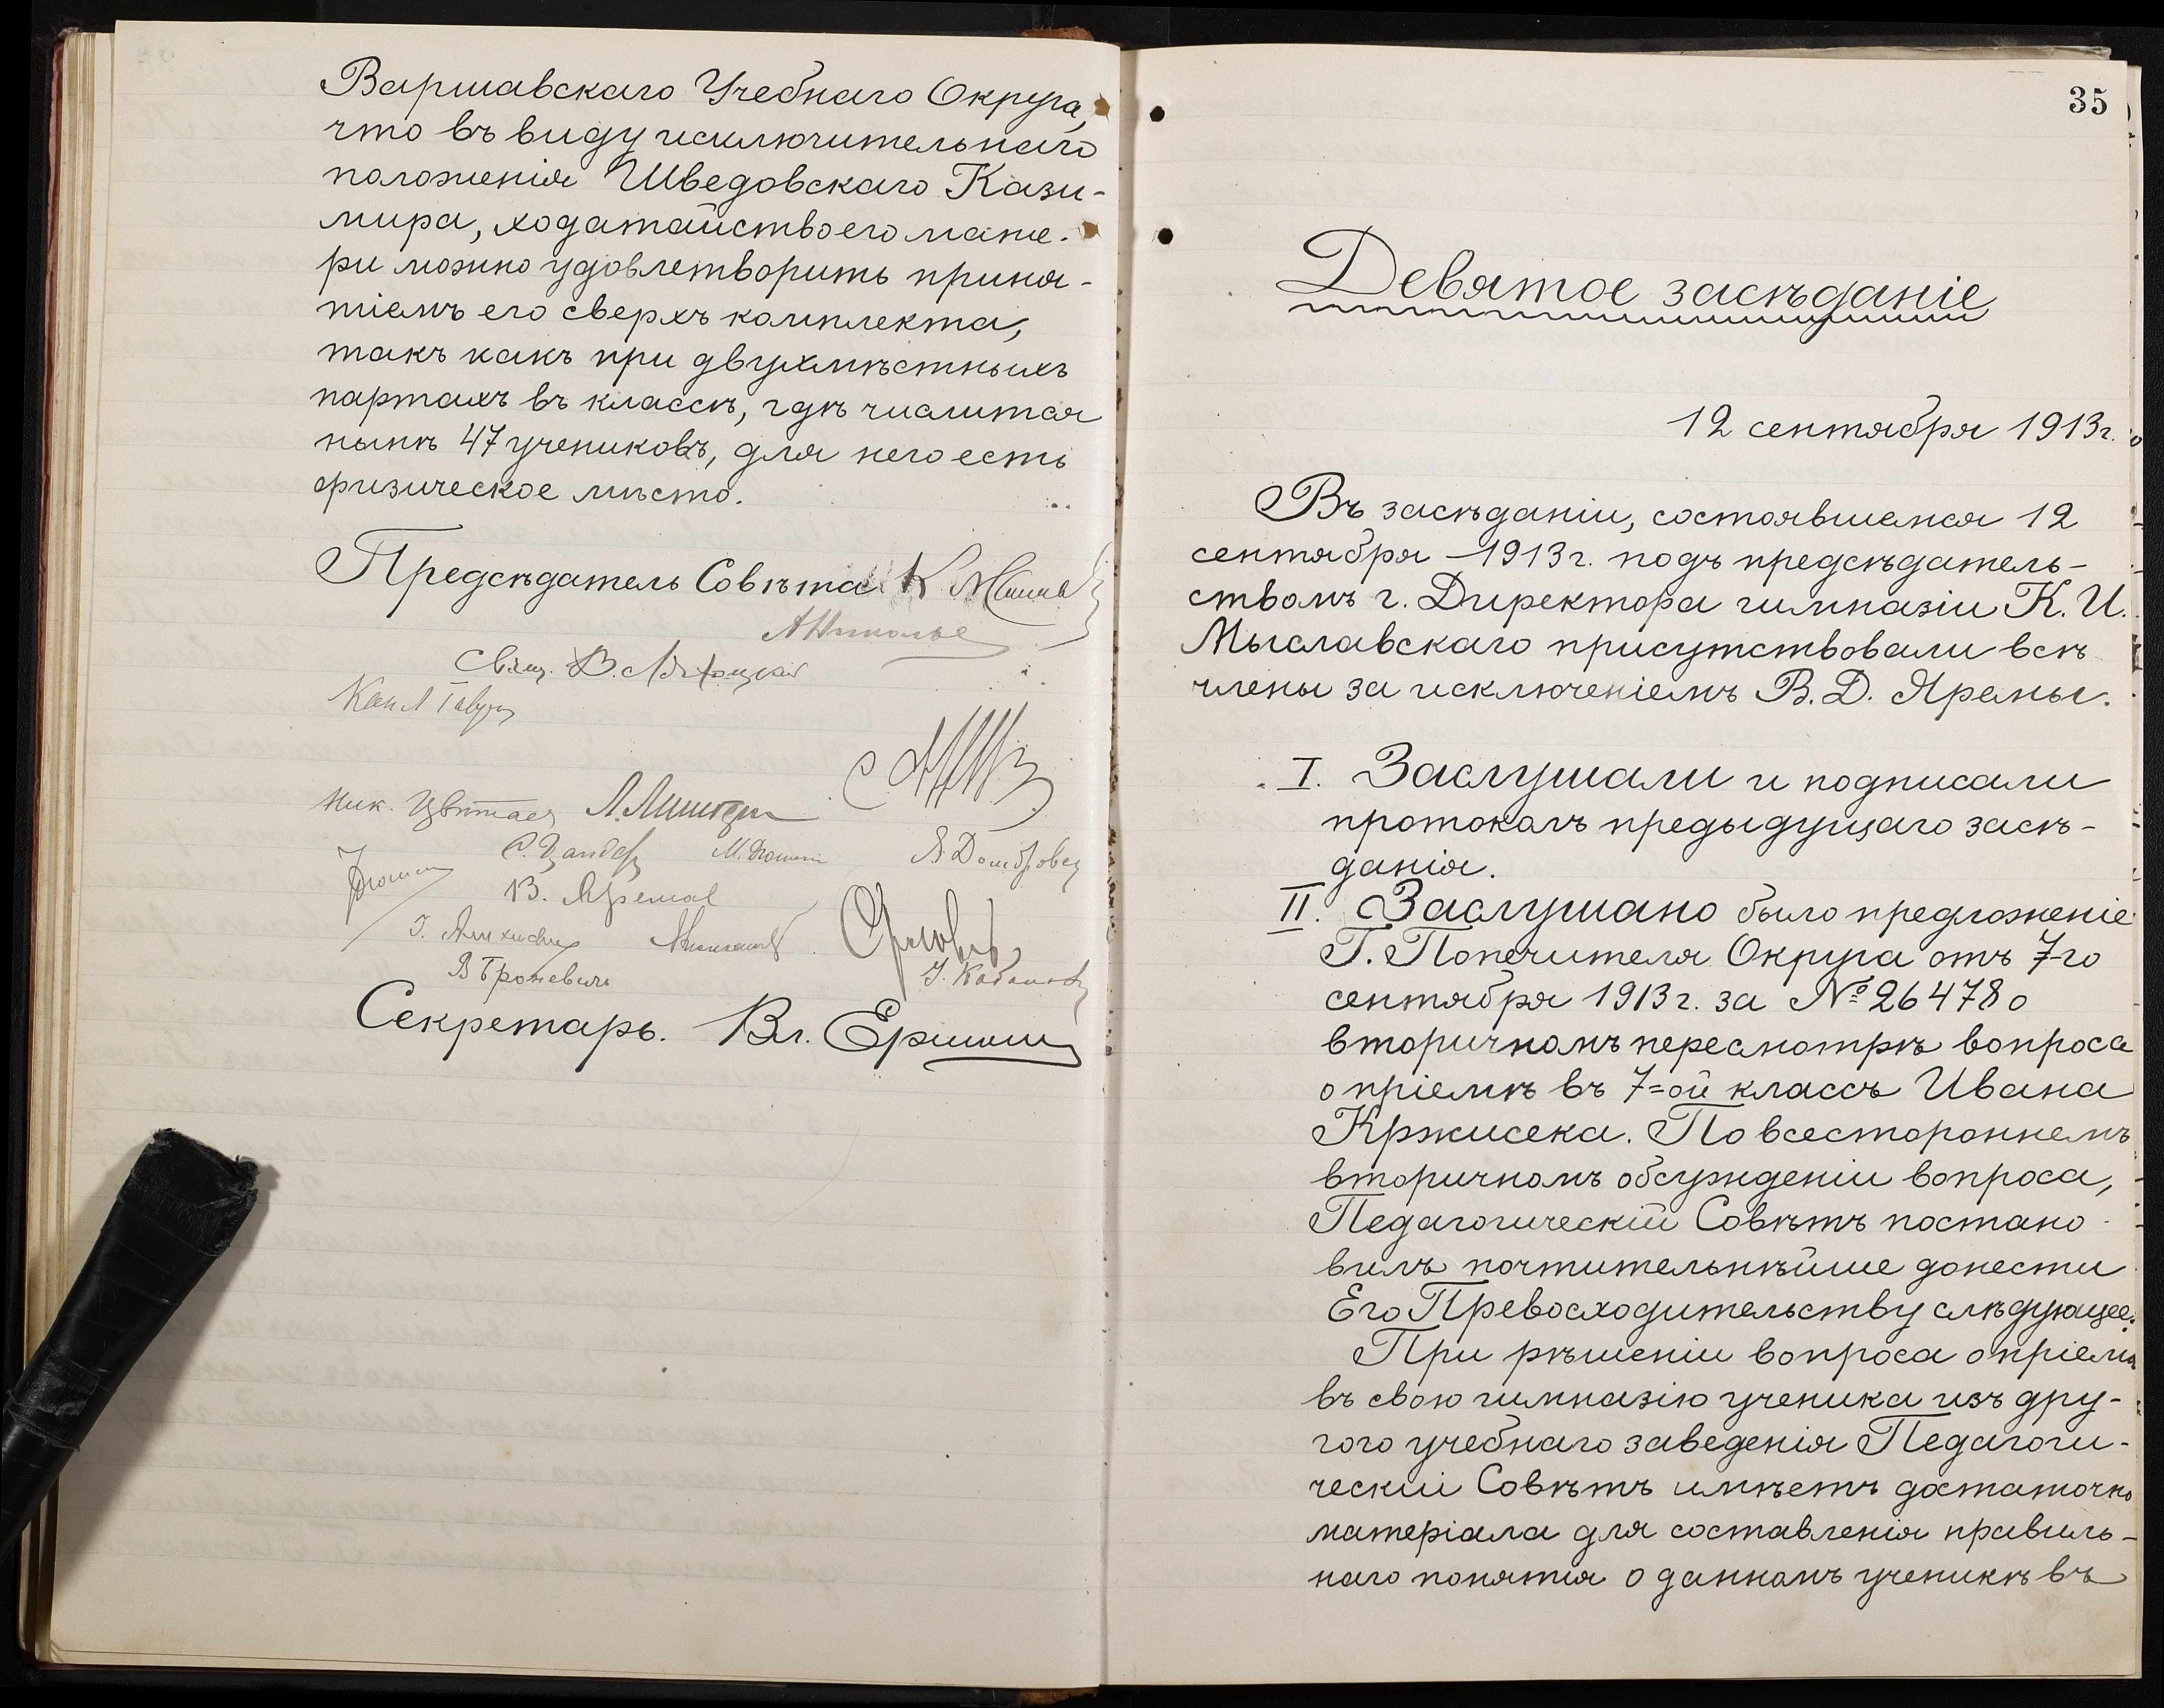 Варшавскаго Учебнаго Округа,
что въ виду исключительнаго
положенія Шведовскаго Кази-
мира, ходатайство его мате-
ри можно удовлетворить приня-
тіемъ его сверхъ комплекта,
такъ какъ при двухмѣстныхъ
партахъ въ классѣ, гдѣ числится
нынѣ 47 учениковъ, для него есть
физическое мѣсто.
Предсѣдатель Совѣта К
Свящ. В.
Ник. Цвѣтаев
В. Ярема
В Броневич
Секретарь. Вл.
35
Девятое засѣданіе
12 сентября 1913г.
Въ засѣданіи, состоявшемся 12
сентября 1913г. подъ предсѣдатель-
ствомъ г. Директора гимназіи К. И.
Мыславскаго присутствовали всѣ
члены за исключеніемъ В. Д. Яремы.
I. Заслушали и подписали
протоколъ предыдущаго засѣ-
данія.
II. Заслушано было предложеніе
Г. Попечителя Округа отъ 7-го
сентября 1913г. за № 26478 о
вторичномъ пересмотрѣ вопроса
о пріемѣ въ 7=ой классъ Ивана
Кржисека. По всестороннемъ
вторичномъ обсужденіи вопроса,
Педагогическій Совѣтъ постано-
вилъ почтительнѣйше донести
Его Превосходительству слѣдующее:
При рѣшеніи вопроса о пріемѣ
въ свою гимназію ученика изъ дру-
гого учебнаго заведенія Педагоги-
ческій Совѣтъ имѣетъ достаточно
матеріала для составленія правиль-
наго понятія о данномъ ученикѣ въ